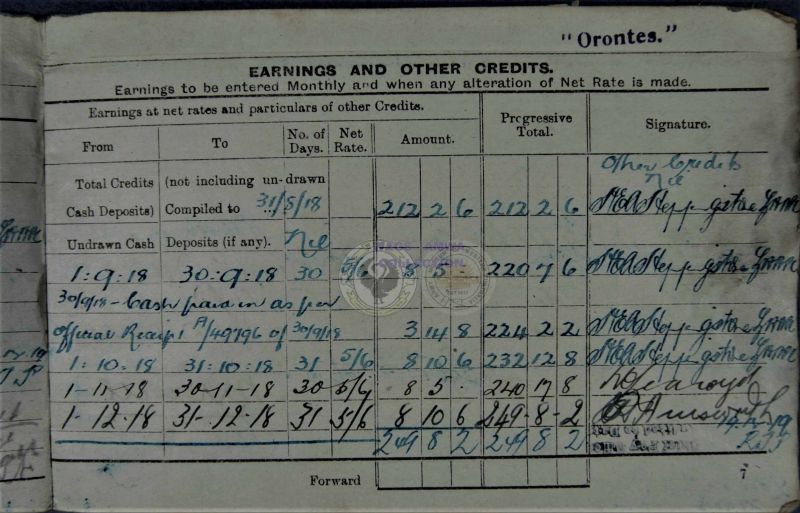 "Orontes."
EARNINGS AND OTHER CREDITS.
Earnings to be entered Monthly and when any alteration of Net Rate is made.
Earnings at net rates and particulars of other Credits.
Amount.
Progressive Total.
Signature.
From To No. of Days. Net Rate.
Other Credits
Nil
Total Credits (not including un-drawn
Cash Deposits) Compiled to 31/5/18 212 2 6 212 2 6
Undrawn Cash Deposits (if any). Nil
1:9:18 30:9:18 30 5/6 8 5 - 220 7 6
30/9/18 - Cash paid in as per
official Receipt A/49796 of 30/9/18 3 14 8 224 2 2
1:10:18 31:10:18 31 5/6 8 10 6 232 12 8
1-11-18 30-11-18 30 5/6 8 5 240 17 8
1-12-18 31-12-18 31 5/6 8 10 6 249-8-2
249 8 2 249 8 2
Forward